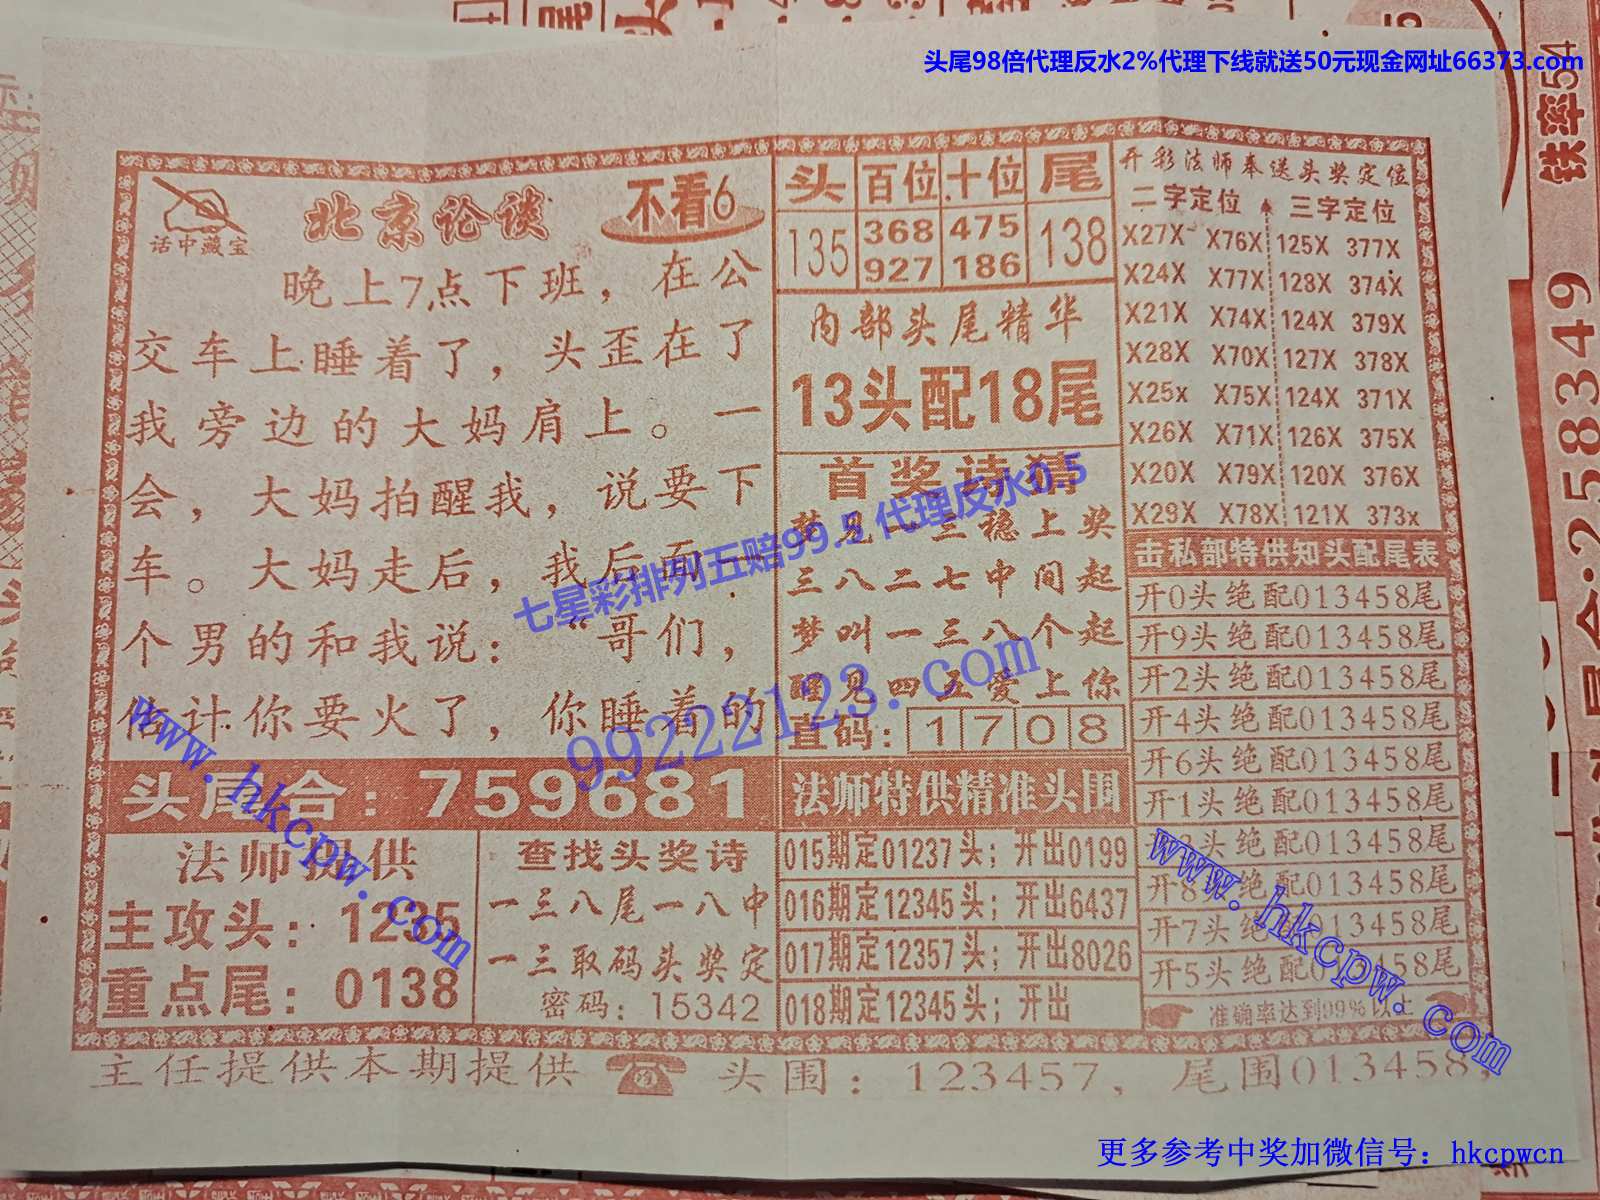 头尾98倍代理反水2%代理下线就送50元现金网址66373.com
铁率54
话中藏宝
北京论谈
不看6
晚上7点下班，在公
交车上睡着了，头歪在了
我旁边的大妈肩上。一
会，大妈拍醒我，说要下
车。大妈走后，我后面一
个男的和我说：“哥们，
估计你要火了，你睡着的
头尾合：759681
法师提供
主攻头：1235
重点尾：0138
查找头奖诗
一三八尾一八中
一三取码头奖定
密码：15342
头 百位 十位 尾
135 368 475 138
927 186
内部头尾精华
13头配18尾
首奖诗猜
梦见一三稳上奖
三八二七中间起
梦叫一三八个起
醒见四五爱上你
直码：1708
法师特供精准头围
015期定01237头；开出0199
016期定12345头；开出6437
017期定12357头；开出8026
018期定12345头；开出
开彩法师奉送头奖定位
二字定位 三字定位
X27X X76X 125X 377X
X24X X77X 128X 374X
X21X X74X 124X 379X
X28X X70X 127X 378X
X25x X75X 124X 371X
X26X X71X 126X 375X
X20X X79X 120X 376X
X29X X78X 121X 373x
击私部特供知头配尾表
开0头绝配013458尾
开9头绝配013458尾
开2头绝配013458尾
开4头绝配013458尾
开6头绝配013458尾
开1头绝配013458尾
开3头绝配013458尾
开8头绝配013458尾
开7头绝配013458尾
开5头绝配013458尾
准确率达到99%以上
主任提供本期提供 头围：123457，尾围013458，
七星彩排列五赔99.5 代理反水0.5
99222123.com
www.hkcpw.com
www.hkcpw.com
258349
更多参考中奖加微信号：hkcpwcn